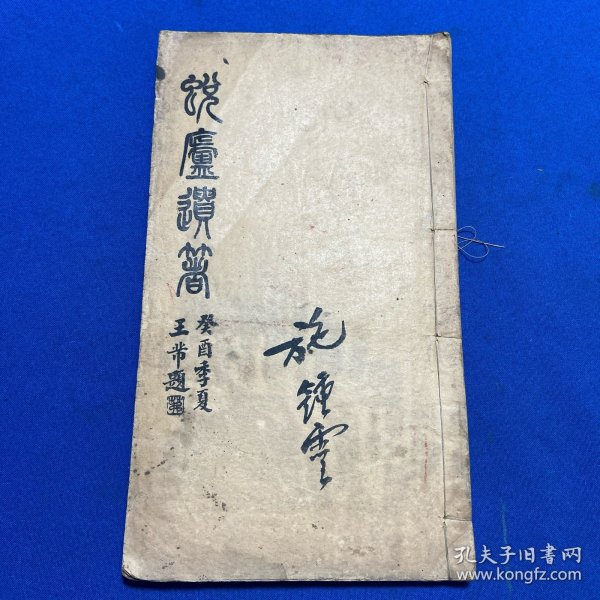 蜕廬遺著
癸酉季夏
王芾題
施鍾雲
孔夫子旧书网
www.kongfz.com